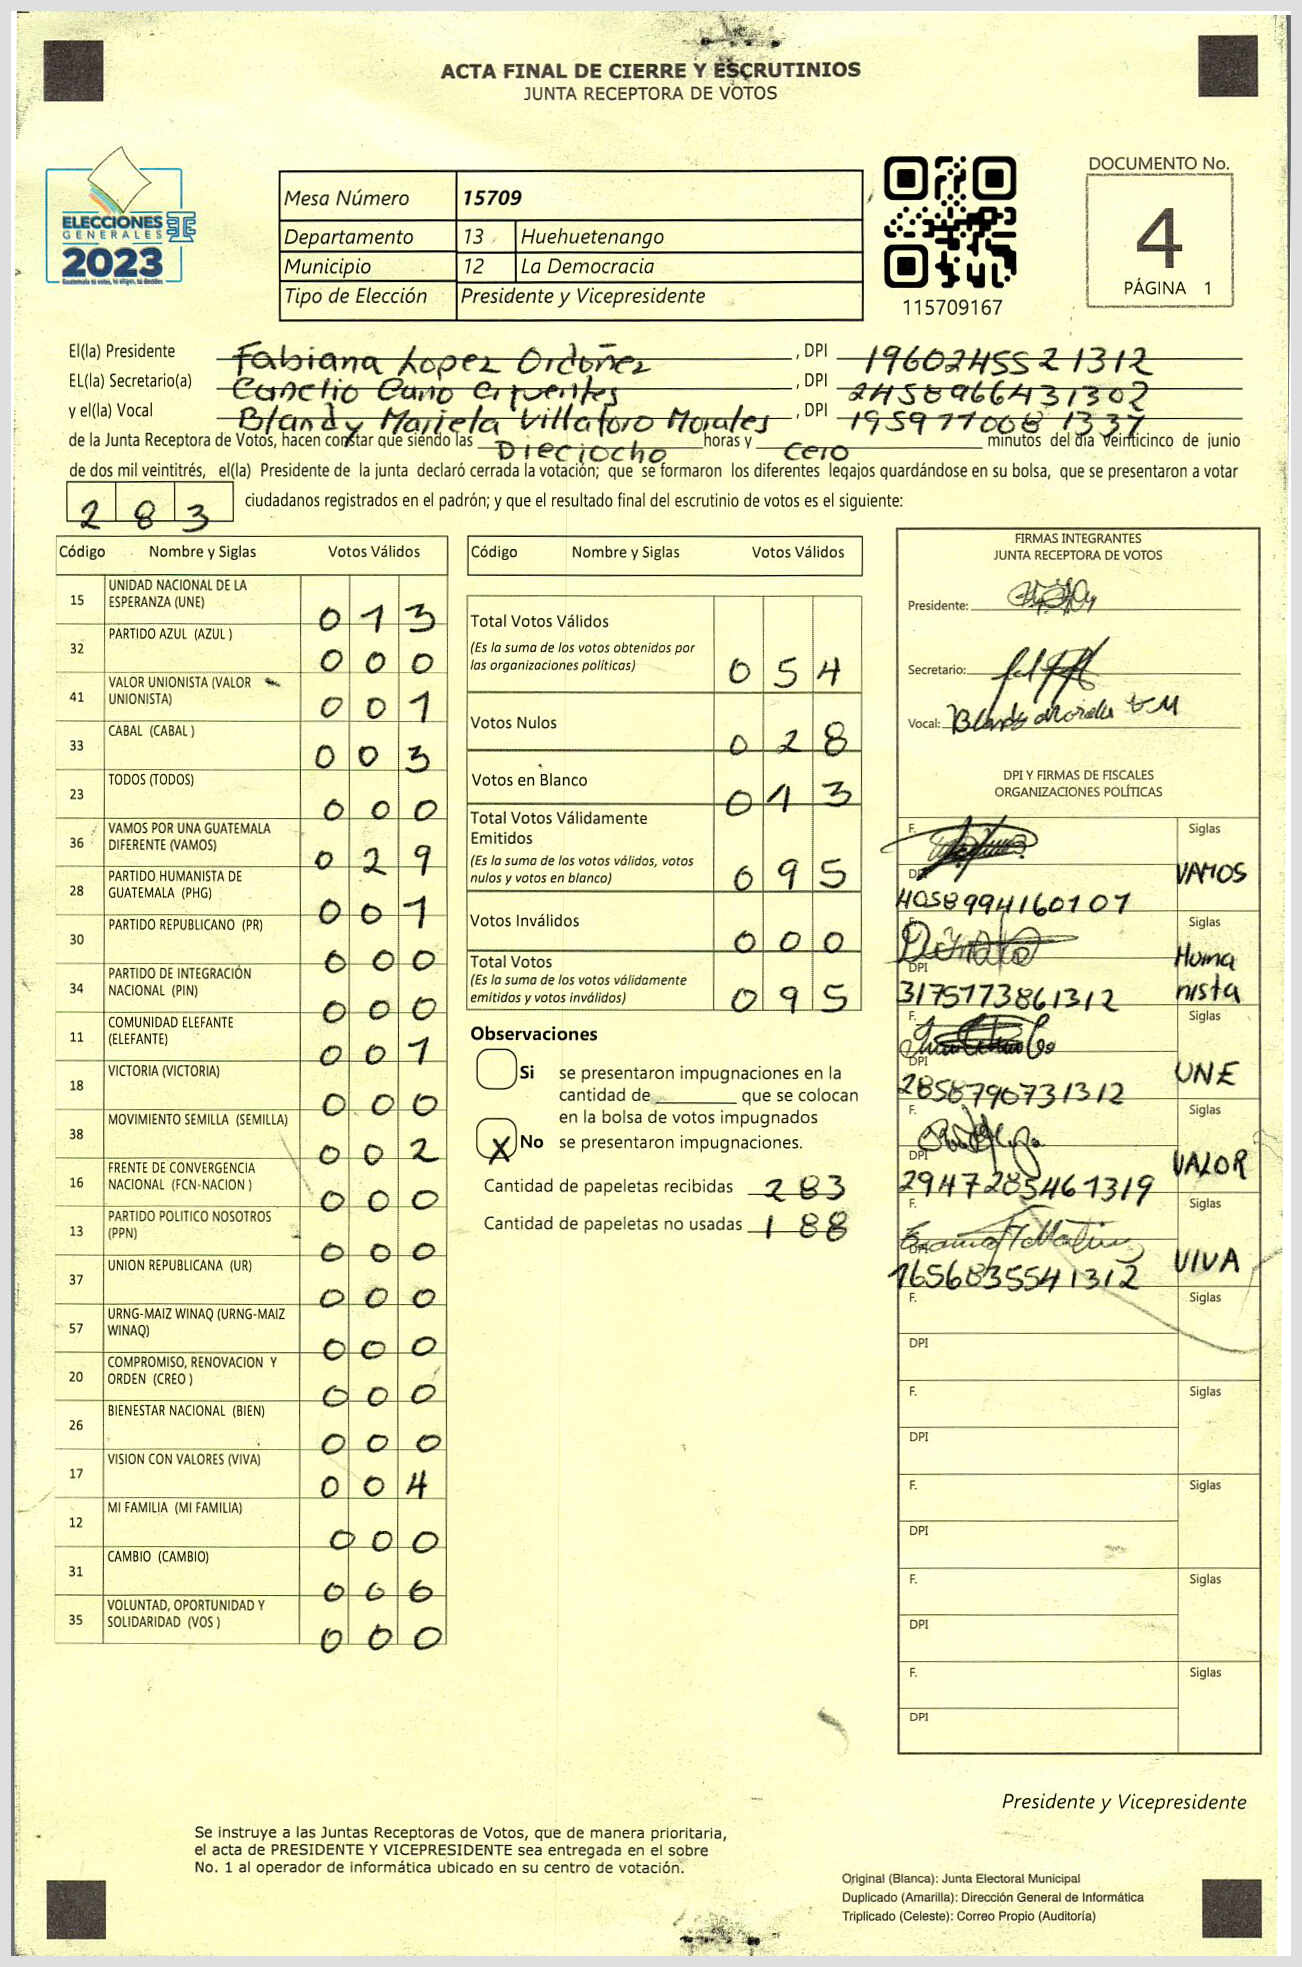 ACTA FINAL DE CIERRE Y ESCRUTINIOS
JUNTA RECEPTORA DE VOTOS
ELECCIONES
GENERALES
2023
Mesa Número 15709
Departamento 13 Huehuetenango
Municipio 12 La Democracia
Tipo de Elección Presidente y Vicepresidente
115709167
DOCUMENTO No.
4
PÁGINA 1
El(la) Presidente Fabiana Lopez Ordoñez , DPI 1960245521312
EL(la) Secretario(a) Cano Cifuentes , DPI 2458966431302
y el(la) Vocal Blandy Mariela Villatoro Morales , DPI 1959770081337
de la Junta Receptora de Votos, hacen constar que siendo las Dieciocho horas y cero minutos del día veinticinco de junio
de dos mil veintitrés, el(la) Presidente de la junta declaró cerrada la votación; que se formaron los diferentes legajos quardándose en su bolsa, que se presentaron a votar
283 ciudadanos registrados en el padrón; y que el resultado final del escrutinio de votos es el siguiente:
Código Nombre y Siglas Votos Válidos
15 UNIDAD NACIONAL DE LA ESPERANZA (UNE) 013
32 PARTIDO AZUL (AZUL ) 000
41 VALOR UNIONISTA (VALOR UNIONISTA) 001
33 CABAL (CABAL ) 003
23 TODOS (TODOS) 000
36 VAMOS POR UNA GUATEMALA DIFERENTE (VAMOS) 029
28 PARTIDO HUMANISTA DE GUATEMALA (PHG) 001
30 PARTIDO REPUBLICANO (PR) 000
34 PARTIDO DE INTEGRACIÓN NACIONAL (PIN) 000
11 COMUNIDAD ELEFANTE (ELEFANTE) 001
18 VICTORIA (VICTORIA) 000
38 MOVIMIENTO SEMILLA (SEMILLA) 002
16 FRENTE DE CONVERGENCIA NACIONAL (FCN-NACION ) 000
13 PARTIDO POLITICO NOSOTROS (PPN) 000
37 UNION REPUBLICANA (UR) 000
57 URNG-MAIZ WINAQ (URNG-MAIZ WINAQ) 000
20 COMPROMISO, RENOVACION Y ORDEN (CREO ) 000
26 BIENESTAR NACIONAL (BIEN) 000
17 VISION CON VALORES (VIVA) 004
12 MI FAMILIA (MI FAMILIA) 000
31 CAMBIO (CAMBIO) 000
35 VOLUNTAD, OPORTUNIDAD Y SOLIDARIDAD (VOS ) 000
Código Nombre y Siglas Votos Válidos
Total Votos Válidos 054
(Es la suma de los votos obtenidos por
las organizaciones políticas)
Votos Nulos 028
Votos en Blanco 013
Total Votos Válidamente
Emitidos 095
(Es la suma de los votos válidos, votos
nulos y votos en blanco)
Votos Inválidos 000
Total Votos 095
(Es la suma de los votos válidamente
emitidos y votos inválidos)
Observaciones
Si se presentaron impugnaciones en la
cantidad de que se colocan
en la bolsa de votos impugnados
X No se presentaron impugnaciones.
Cantidad de papeletas recibidas 283
Cantidad de papeletas no usadas 188
FIRMAS INTEGRANTES
JUNTA RECEPTORA DE VOTOS
Presidente:
Secretario:
Vocal: Blandy Mariela V M
DPI Y FIRMAS DE FISCALES
ORGANIZACIONES POLÍTICAS
F. Siglas
DPI VAMOS
4058994160101
F. Siglas
DPI Humanista
3175773861312
F. Siglas
DPI UNE
2858790731312
F. Siglas
DPI VALOR
2947285461319
F. Siglas
DPI VIVA
1656835541312
F. Siglas
DPI
F. Siglas
DPI
F. Siglas
DPI
F. Siglas
DPI
F. Siglas
DPI
Presidente y Vicepresidente
Se instruye a las Juntas Receptoras de Votos, que de manera prioritaria,
el acta de PRESIDENTE Y VICEPRESIDENTE sea entregada en el sobre
No. 1 al operador de informática ubicado en su centro de votación.
Original (Blanca): Junta Electoral Municipal
Duplicado (Amarilla): Dirección General de Informática
Triplicado (Celeste): Correo Propio (Auditoría)